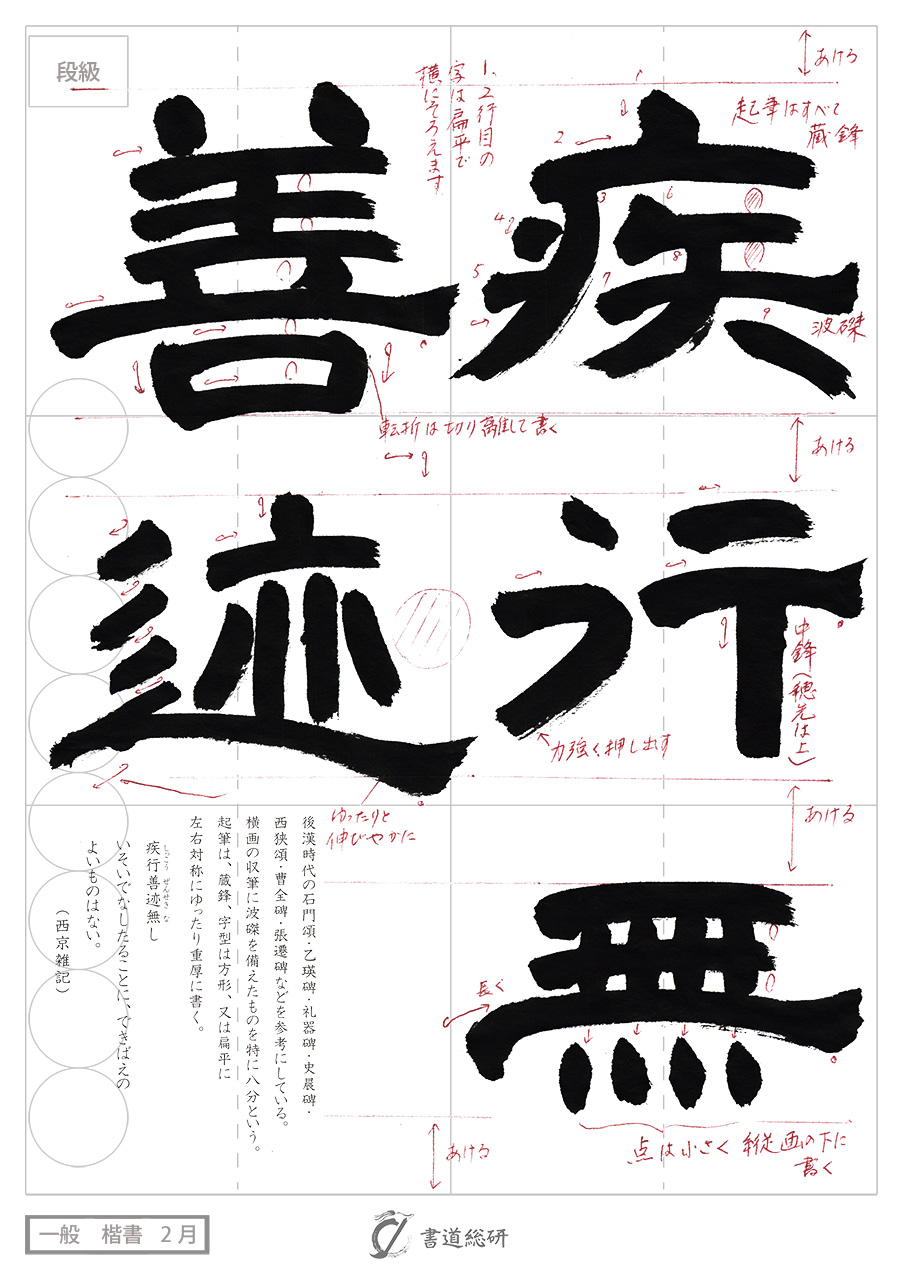 段級
疾行無
善迹
あける
起筆はすべて
蔵鋒
1、2行目の
字は扁平で
横にそろえます
1
2
3
4
5
6
7
8
9
波磔
転折は切り離して書く
あける
中鋒(穂先は上)
力強く押し出す
ゆったりと
伸びやかに
あける
長く
点は小さく縦画の下に
書く
あける
後漢時代の石門頌・乙瑛碑・礼器碑・史晨碑・
西狭頌・曹全碑・張遷碑などを参考にしている。
横画の収筆に波磔を備えたものを特に八分という。
起筆は、蔵鋒、字型は方形、又は扁平に
左右対称にゆったり重厚に書く。
しっこう ぜんせき な
疾行善迹無し
いそいでなしたることに、できばえの
よいものはない。
(西京雑記)
一般 楷書 2月
書道総研